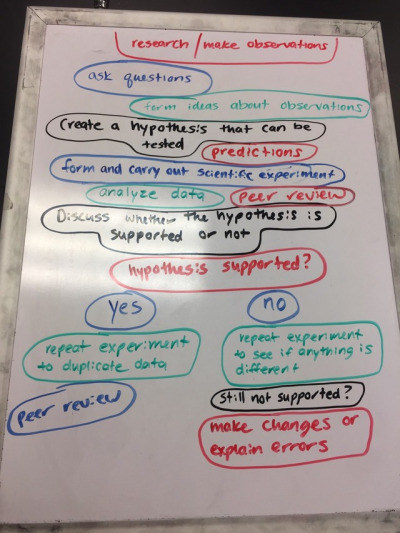 research/make observations
ask questions
form ideas about observations
Create a hypothesis that can be
tested
predictions
form and carry out scientific experiment
analyze data
peer review
Discuss whether the hypothesis is
supported or not
hypothesis supported?
yes
no
repeat experiment
to duplicate data
repeat experiment
to see if anything is
different
peer review
still not supported?
make changes or
explain errors